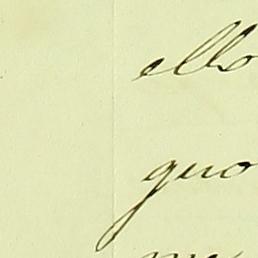 ello
quo